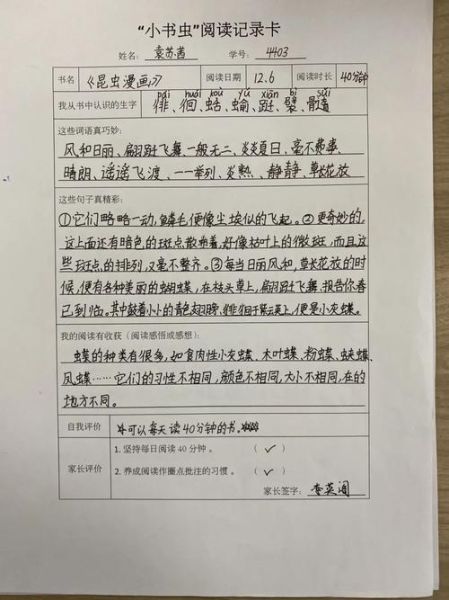 “小书虫”阅读记录卡
姓名： 袁苏茜 学号： 4403
书名 《昆虫漫画》 阅读日期 12.6 阅读时长 40分钟
pái huái kuò yú xiān bì suǐ
我从书中认识的生字 徘、徊、蛞、蝓、跹、襞、髓
这些词语真巧妙：
风和日丽、翩跹飞舞、一般无二、炎炎夏日、毫不费事、
晴朗、遥遥飞渡、一一举列、炎热、静静、草长花放
这些句子真精彩：
①它们略略一动，鳞毛便像尘埃似的飞起。②更奇妙的，
这上面还有暗色的斑点散布着，好像枯叶上的微斑，而且这
些斑点的排列，又毫不整齐。③每当日丽风和，草长花放的时
候，便有各种美丽的蝴蝶，在枝头草上，翩跹飞舞，报告你春
已到临。其中鼓着小小的青色翅膀，徘徊于紫云英上，便是小灰蝶。
我的阅读有收获（阅读感悟或感想）：
蝶的种类有很多，如食肉性小灰蝶、木叶蝶、粉蝶、蛱蝶、
凤蝶……它们的习性不相同，颜色不相同，大小不相同，在的
地方不同。
自我评价 可以每天读40分钟的书。
家长评价
1. 坚持每日阅读 40 分钟。 （ ✓ ）
2. 养成阅读作圈点批注的习惯。 （ ✓ ）
家长签字：